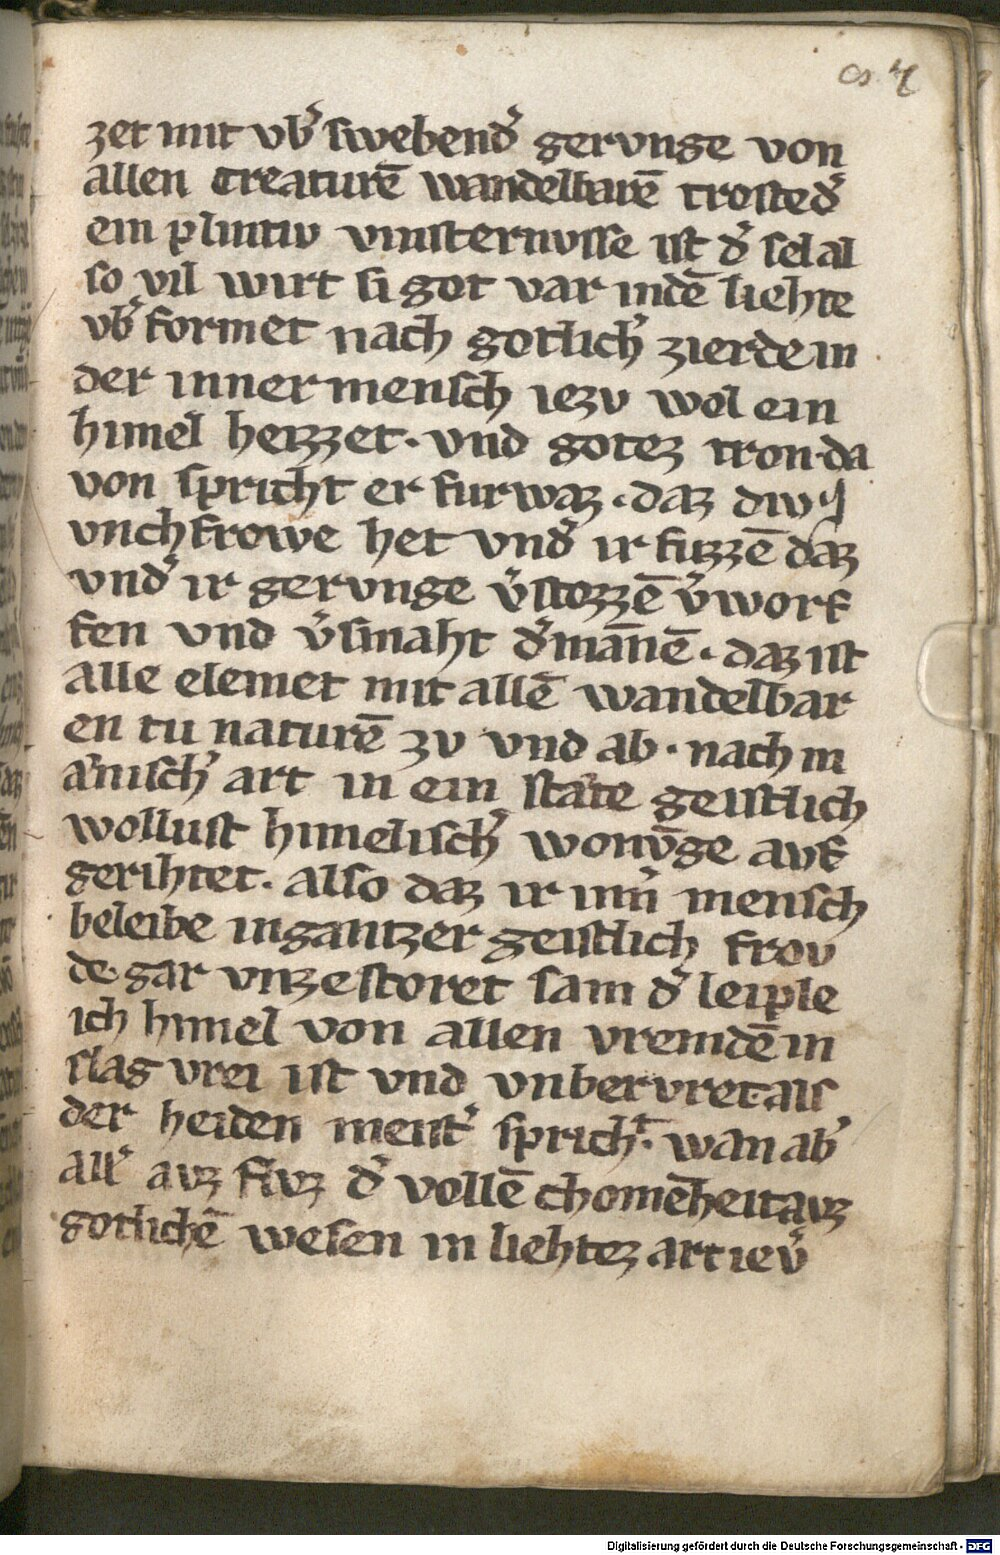 zet mit vb̾ swebend̾ gervnge von
allen creaturē wandelbarē trosted̾
ein plintiv vinsternvsse ist d̾ sel al
so vil wirt si got var indē liehte
vb̾ formet nach gotlich̾ zierde in
der inner mensch iezv wol ein
himel heizzet · vnd gotez tron · da
von spricht er furwaz · daz div j
vnchfrowe het vnd̾ ir fuzzē daz
vnd̾ ir gervnge v̾stozzē v̾worf
fen vnd v̾smaht d̾ mānē · daz ist
alle elemet mit allē wandelbar
en tu naturē zv vnd ab · nach in
ånisch̾ art in ein ståte geistlich
wollust himelisch̾ wonv̄ge avf
gerihtet · also daz ir inn̾ mensch
beleibe in gantzer geistlich frov
de · gar vnzestoret sam d̾ leiple
ich himel von allen vremdē in
slag vrei ist vnd vnbervret · als
der heiden meist̾ sprichᵗ · wan ab̾
all̾ avz flvz d̾ vollē chomēheit avz
gotlichē wesen in liehtez art iev̾
Digitalisierung gefördert durch die Deutsche Forschungsgemeinschaft - DFG